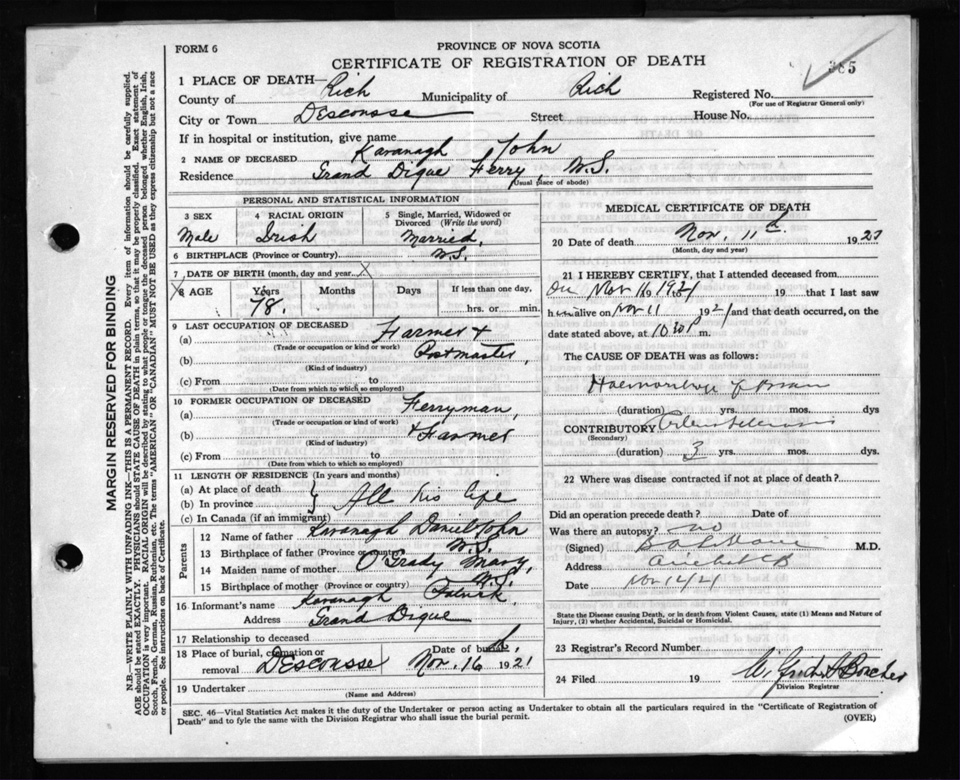 FORM 6
PROVINCE OF NOVA SCOTIA
CERTIFICATE OF REGISTRATION OF DEATH
385
1 PLACE OF DEATH— Rich
County of Municipality of Rich
Registered No.
(For use of Registrar General only)
City or Town Descousse Street House No.
If in hospital or institution, give name
2 NAME OF DECEASED Kavanagh John
Residence Grand Dique Ferry, N.S.
(Usual place of abode)
PERSONAL AND STATISTICAL INFORMATION
3 SEX
Male
4 RACIAL ORIGIN
Irish
5 Single, Married, Widowed or Divorced (Write the word)
Married,
6 BIRTHPLACE (Province or Country) N.S.
7 DATE OF BIRTH (month, day and year) X
8 AGE Years Months Days If less than one day,
78. hrs. or min.
9 LAST OCCUPATION OF DECEASED Farmer +
(a)
(Trade or occupation or kind or work)
(b) Postmaster,
(Kind of industry)
(c) From to
(Date from which to which so employed)
10 FORMER OCCUPATION OF DECEASED
(a) Ferryman,
(Trade or occupation or kind of work)
(b) + Farmer
(Kind of industry)
(c) From to
(Date from which to which so employed)
11 LENGTH OF RESIDENCE (In years and months)
(a) At place of death
(b) In province All his life
(c) In Canada (if an immigrant)
Parents
12 Name of father Kavanagh Daniel John
13 Birthplace of father (Province or country) N.S.
14 Maiden name of mother O'Grady Mary,
15 Birthplace of mother (Province or country) N.S.
16 Informant's name Kavanagh Patrick,
Address Grand Dique
17 Relationship to deceased
18 Place of burial, cremation or removal Descousse
Date of burial, Nov. 16 1921
19 Undertaker
(Name and Address)
MEDICAL CERTIFICATE OF DEATH
20 Date of death Nov. 11th. 1921
(Month, day and year)
21 I HEREBY CERTIFY, that I attended deceased from
On Nov 11 1921 to 19 that I last saw
him alive on Nov 11 1921 and that death occurred, on the
date stated above, at 10 30 P m.
The CAUSE OF DEATH was as follows:
Haemorrhage of Brain
(duration) yrs. mos. dys
CONTRIBUTORY Arteriosclerosis
(Secondary)
(duration) 3 yrs. mos. dys.
22 Where was disease contracted if not at place of death?
Did an operation precede death? Date of
Was there an autopsy? no
(Signed) M.D.
Address Arichat CB
Date Nov 14/21
State the Disease causing Death, or in death from Violent Causes, state (1) Means and Nature of
Injury, (2) whether Accidental, Suicidal or Homicidal.
23 Registrar's Record Number
24 Filed 19
Division Registrar
SEC. 46—Vital Statistics Act makes it the duty of the Undertaker or person acting as Undertaker to obtain all the particulars required in the "Certificate of Registration of
Death" and to fyle the same with the Division Registrar who shall issue the burial permit.
(OVER)
MARGIN RESERVED FOR BINDING
N.B.—WRITE PLAINLY WITH UNFADING INK—THIS IS A PERMANENT RECORD. Every item of information should be carefully supplied.
AGE should be stated EXACTLY. PHYSICIANS should STATE CAUSE OF DEATH in plain terms, so that it may be properly classified. Exact statement of
OCCUPATION is very important. RACIAL ORIGIN will be described by stating to what people or tongue the deceased person belonged whether English, Irish,
Scotch, French, German, Russian, Ruthenian, etc. The terms "AMERICAN" OR "CANADIAN" MUST NOT BE USED as they express citizenship but not a race
or people. See instructions on back of Certificate.